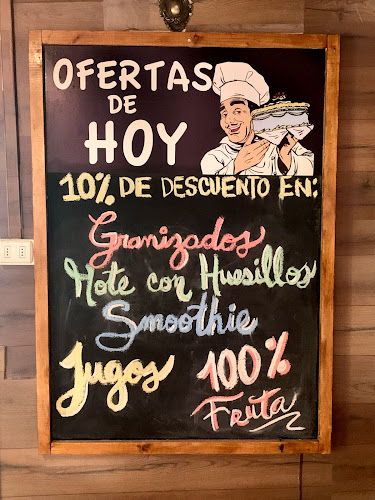 OFERTAS
DE
HOY
10% DE DESCUENTO EN:
Granizados
Mote con Huesillos
Smoothie
Jugos 100%
Fruta